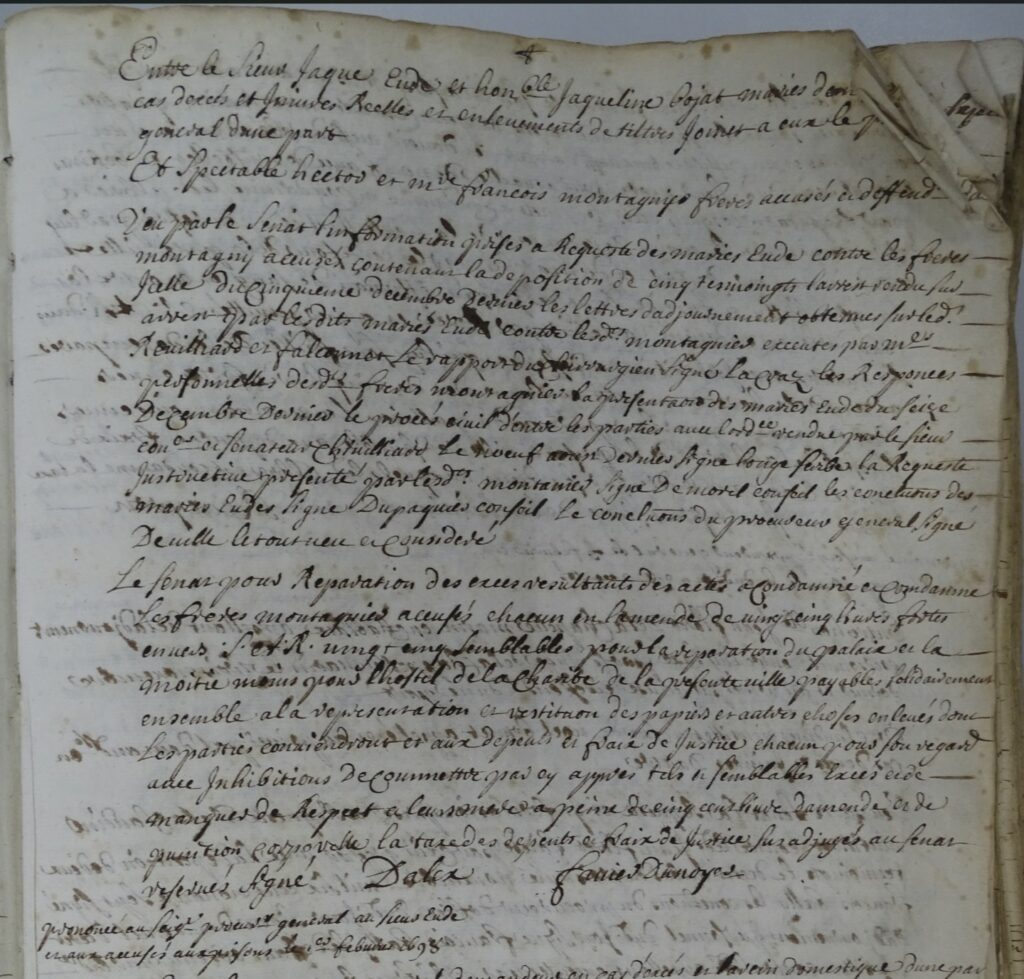 Entre le Sieur Jaque Eude et honble Jaqueline bojat mariés dem
cas dexcés et Injures Reelles et enlevements de tiltres Joinct a eux le p
general dune part
Et Spectable hector et mre francois montagnys freres accusés et deffend
Veu par le Senat linformation prises a Requeste des maries Eude contre les freres
montagny accusés contenant la deposition de cinq temoingts larrest rendu sur
Jcelle du Cinquieme decembre dernier les lettres dadjournement obtenues sur led.
arrest par lesdits mariés Eude contre lesd. montagnies executes par mes
Reuilliard et falconnet Le rapport du chirurgien signé la craz les Responces
personnelles desd. freres montagnies la presentaon des maries Eude du seize
Decembre Dernier le procés civil dentre les parties avec lordce rendue par le sieur
coner et senateur Chuilliard Le niveuf aoust dernier signe la Requeste
Instructive presenté par lesd. montanies signe De motel conseil les conclusions des
maries Eudes signe Dupaquies conseil Le conclusions du procureur general signé
Deville le tout veu et Consideré
Le senat pour Reparation des exces resultants des actes a Condamné et Condamne
Les freres montagnies accusés chacun en lamende de vingt cinq livres fortes
envers S.A.R. vingt cinq semblables pour la reparation du palais et la
moitie moins pour lhostel de la Charité de la presente ville payables solidairement
ensemble a la representation et restituon des papiers et autres choses enlevés dont
Les parties conviendront et aux depents et fraix de Justice chacun pour son regard
avec Inhibitions De Commettre par cy appres tels et semblables Exces et de
manquer de Respect a leur mere a peine de cinq cent livre damende et de
punition corporelle la taxe des depents et fraix de Justice sus adjugés au senat
reservés signé Dalex favier Dunoyer
prononcé au seigr procurr general au sieur Eude
et aux accusés aux prisons le fevrier 1698
demandeur en cas dexcés et larcin domestique dune par